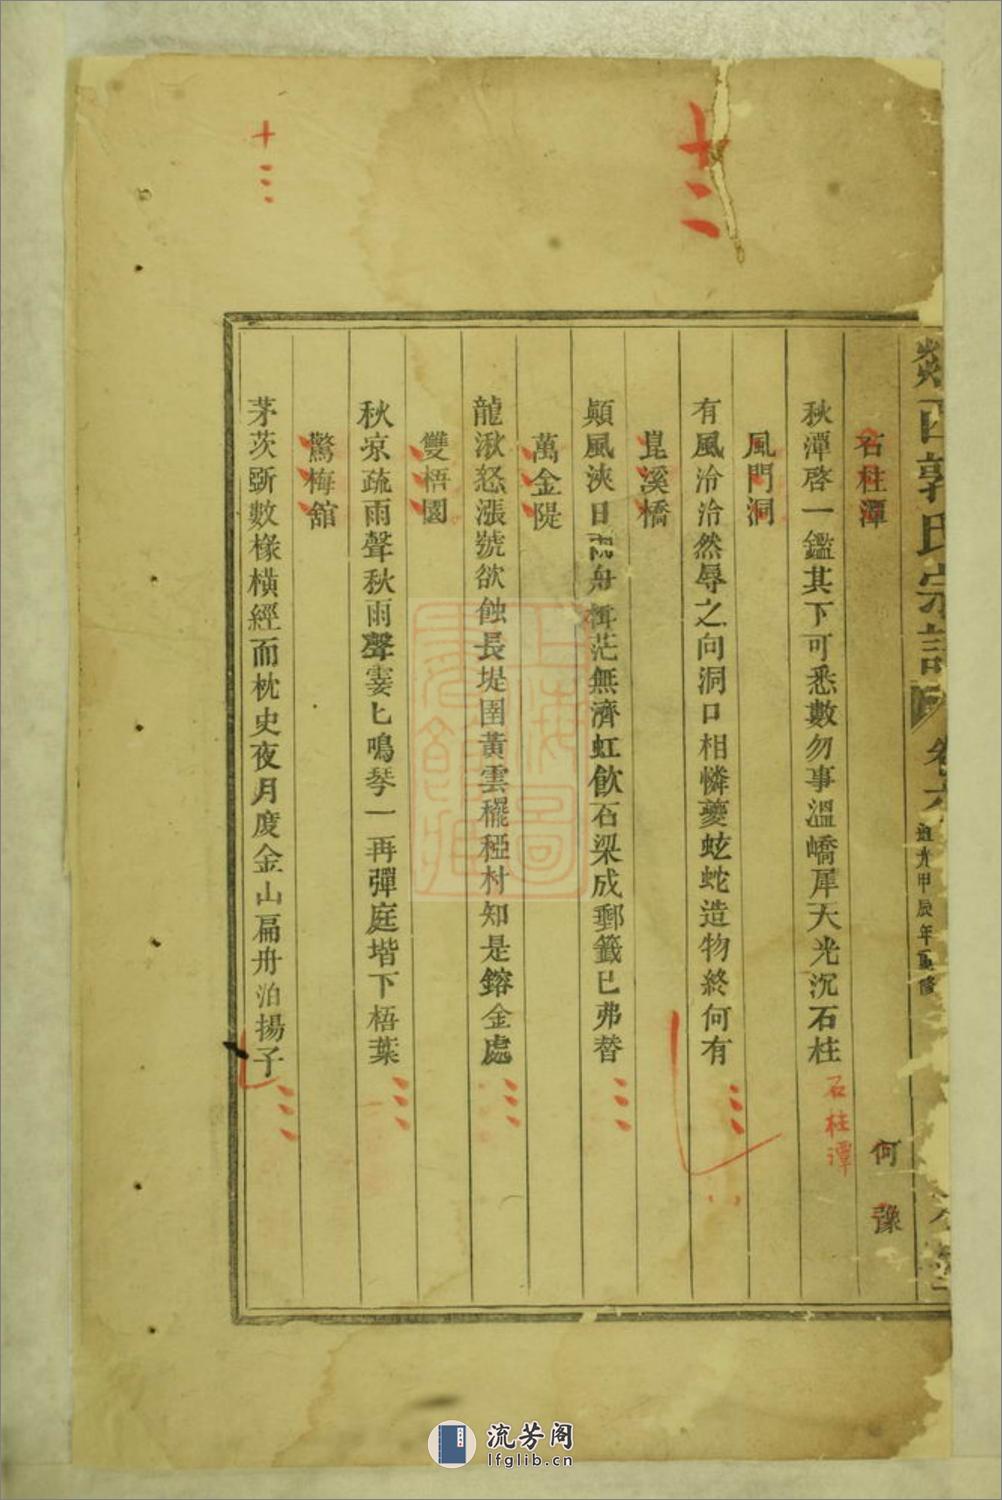 郭氏宗譜
卷六
道光甲辰年重修
石柱潭
何豫
秋潭啓一鑑其下可悉數勿事溫嶠犀天光沉石柱
石柱潭
風門洞
有風泠泠然辱之向洞口相憐夔蚿蛇造物終何有
崑溪橋
顛風浹日舟楫茫無濟虹飲石梁成郵籤已弗替
萬金隄
龍湫怒漲號欲蝕長堤圉黃雲䆉稏村知是鎔金處
雙梧園
秋凉疏雨聲秋雨聲霎匕鳴琴一再彈庭堦下梧葉
驚梅舘
茅茨斲數椽橫經而枕史夜月度金山扁舟泊揚子
十二
十三
上海圖書館藏
流芳阁
lfglib.cn